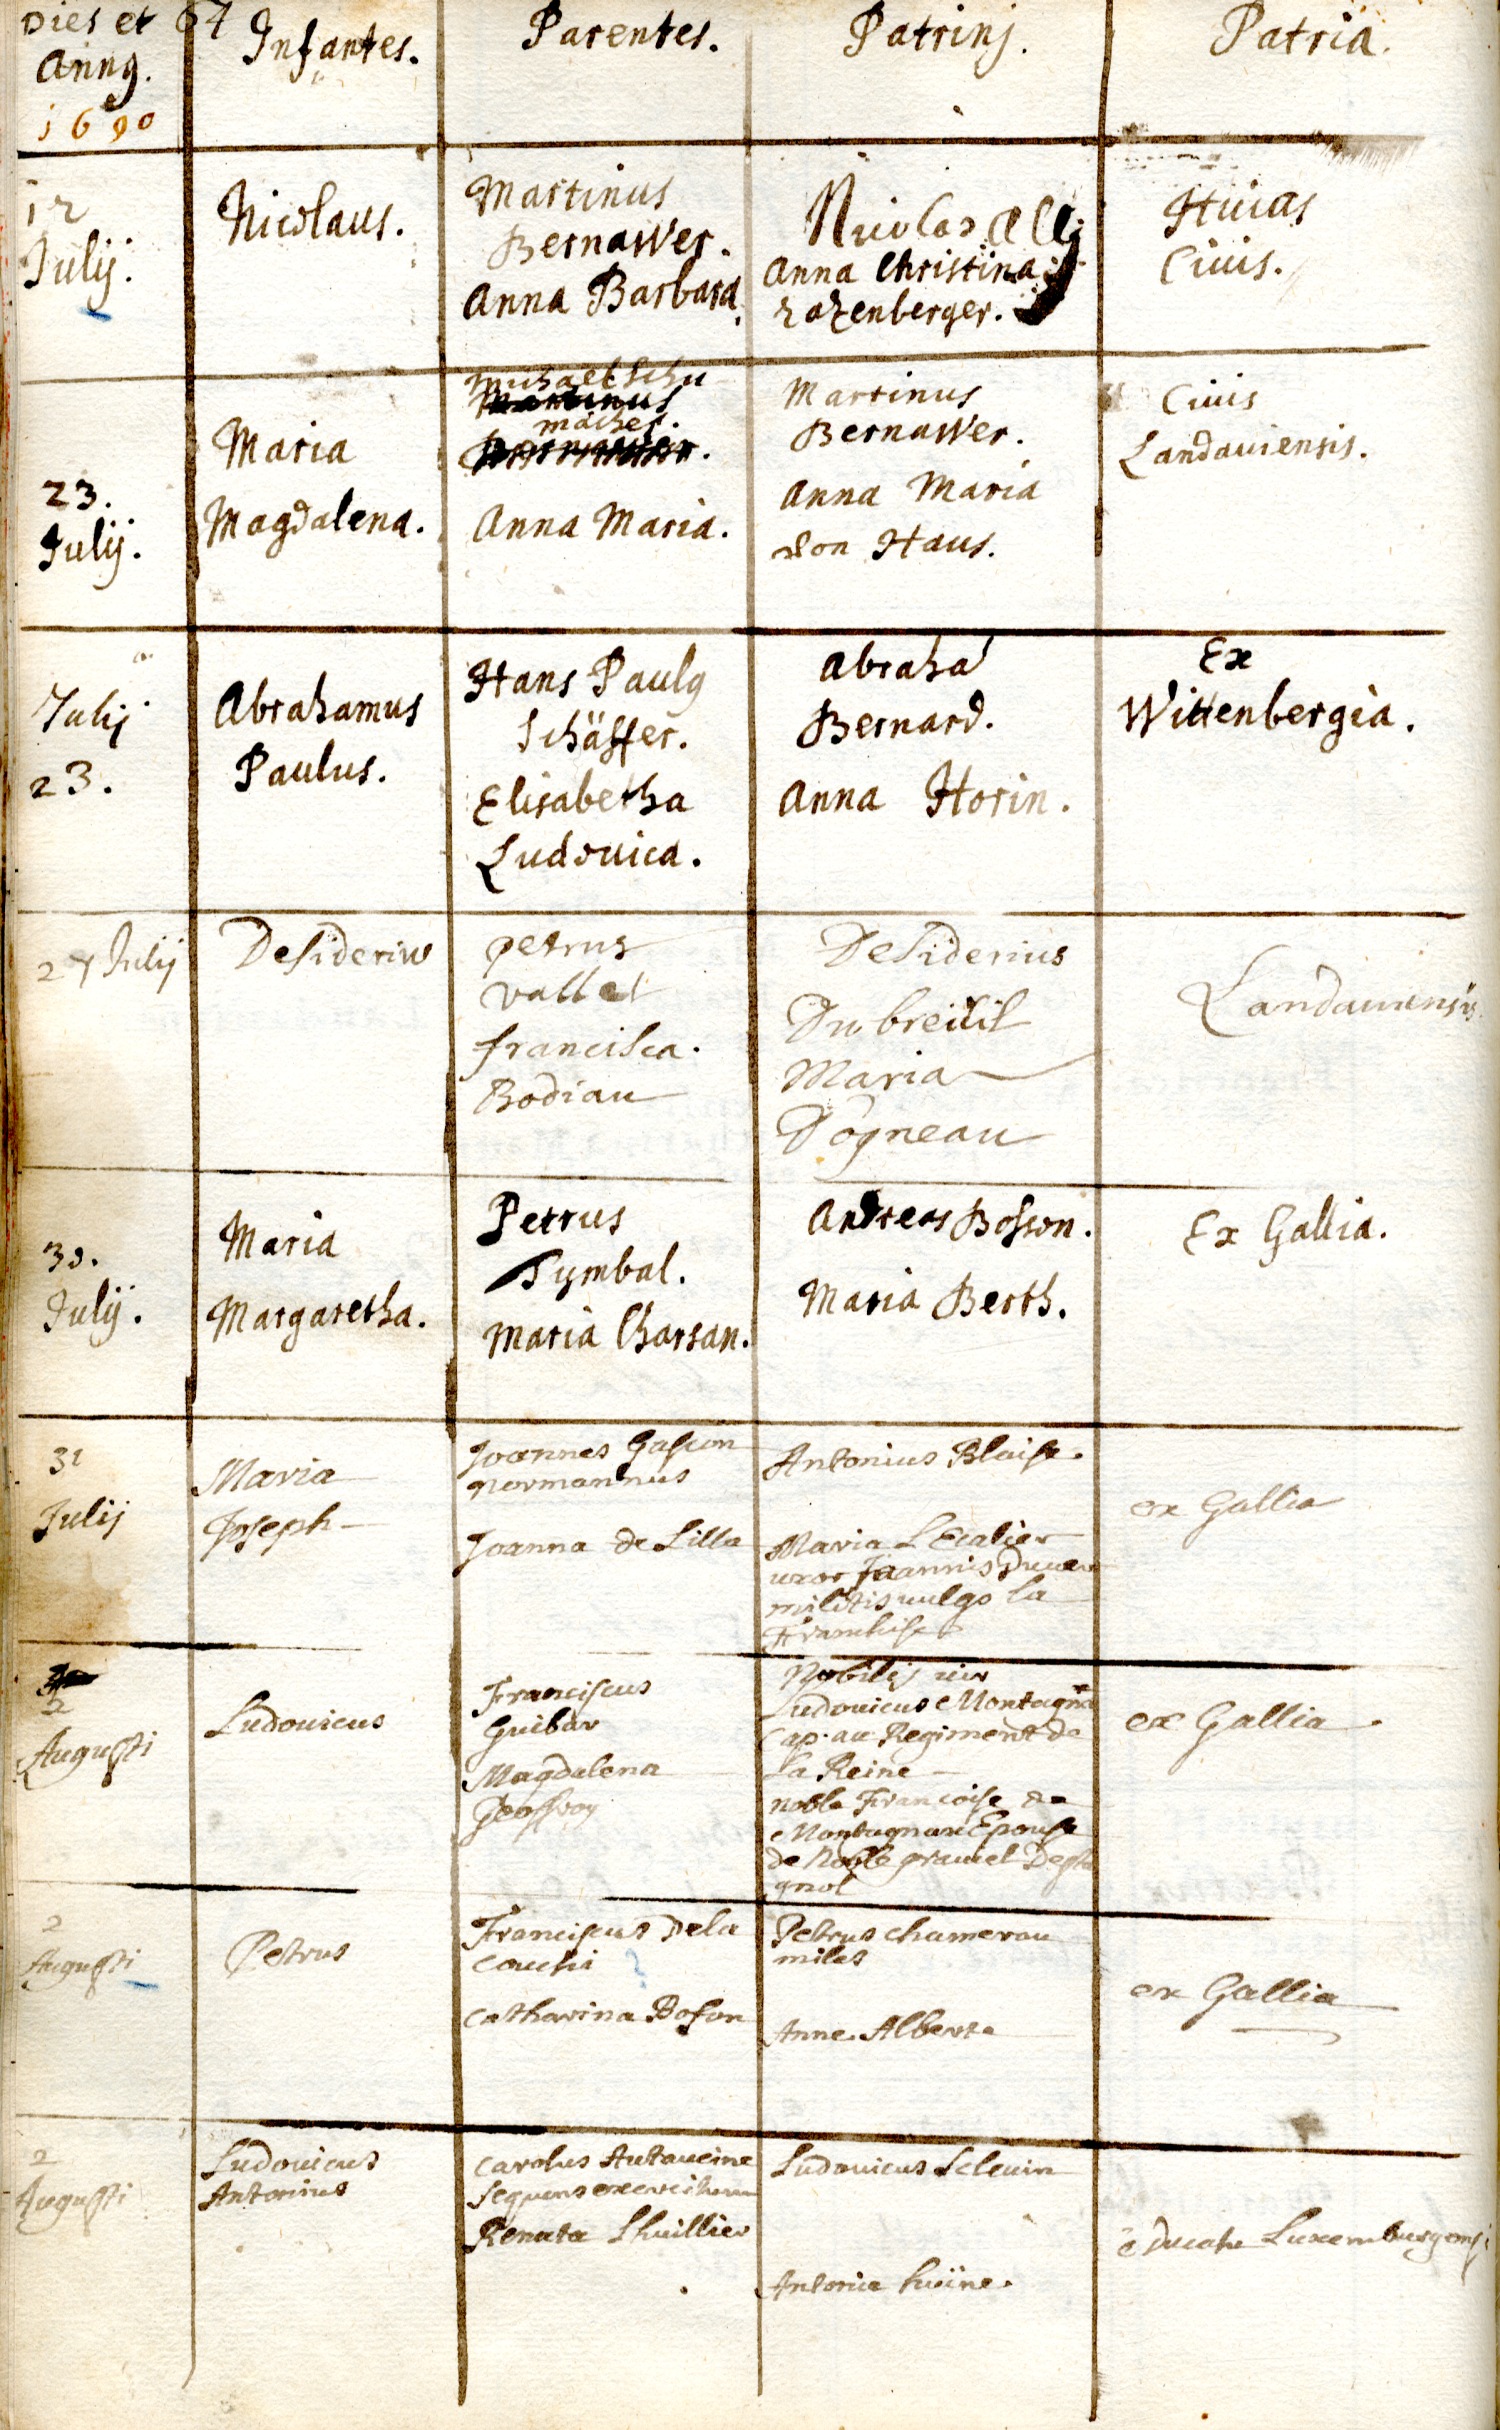 Dies et 67
Anng.
1690
Infantes.
Parentes.
Patrinj.
Patria.
12
Julij.
Nicolaus.
Martinus
Bernawer.
Anna Barbara.
Nicolas
Anna Christina
Huias
Ciuis.
23.
Julij.
Maria
Magdalena.
Michael Schu
macher.
Anna Maria.
Martinus
Bernawer.
Anna Maria
von Haus.
Ciuis
Landauiensis.
Julij
23.
Abrahamus
Paulus.
Hans Paulg
Schäffer.
Elisabetha
Ludouica.
Abraha
Bernard.
Anna Horin.
Ex
Wittenbergia.
27 Julij
Desiderius
petrus
vallet
francisca.
Bodiau
Desiderius
Dubreüil
Maria
Dogneau
Landauiensis
30.
Julij.
Maria
Margaretha.
Petrus
Tymbal.
Maria Charsan.
Andreas Bosson.
Maria Berth.
Ex Gallia.
31
Julij
Maria
Joseph
Joannes Gascon
normannus
Joanna de Lilla
Antonius Blaise.
Maria L Ecalier
uxor Joannis
militis uulgo la
Franchise
ex Gallia
2
Augusti
Ludouicus
Franciscus
Guibar
Magdalena
Geoffroy
Nobilis uir
Ludouicus Montagna
Cap. au Regiment de
la Reine
noble Francoise de
Montagnac Epouse
de Noble
gnol
ex Gallia
2
Augusti
Petrus
Franciscus Dela
couchi
catharina Boson
Petrus chamerau
miles
Anne Alberte
ex Gallia
2
Augusti
Ludouicus
Antonius
carolus Antoueine
sequens exercitum
Renata Lhuillier
Ludouicus Leleuin
Antonia huïne.
è ducatu Luxemburgensi